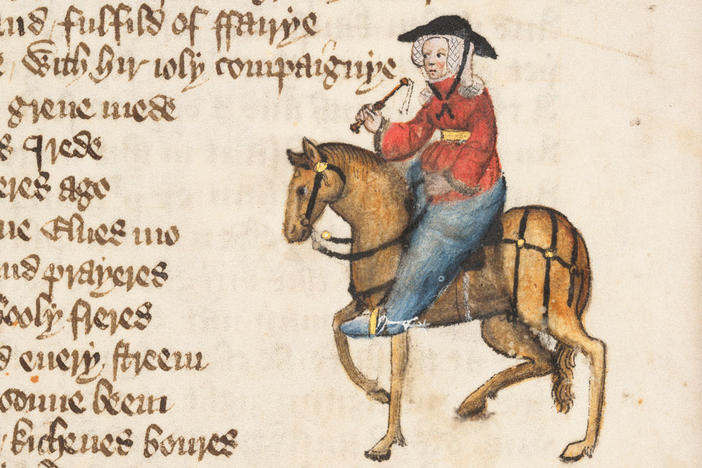 and fulfild of ffairye
With hir ioly compaignye
grene mede
I rede
eres ago
ne Elues mo
and prayeres
hooly freres
d euery streem
sonne beem
kichenes boures